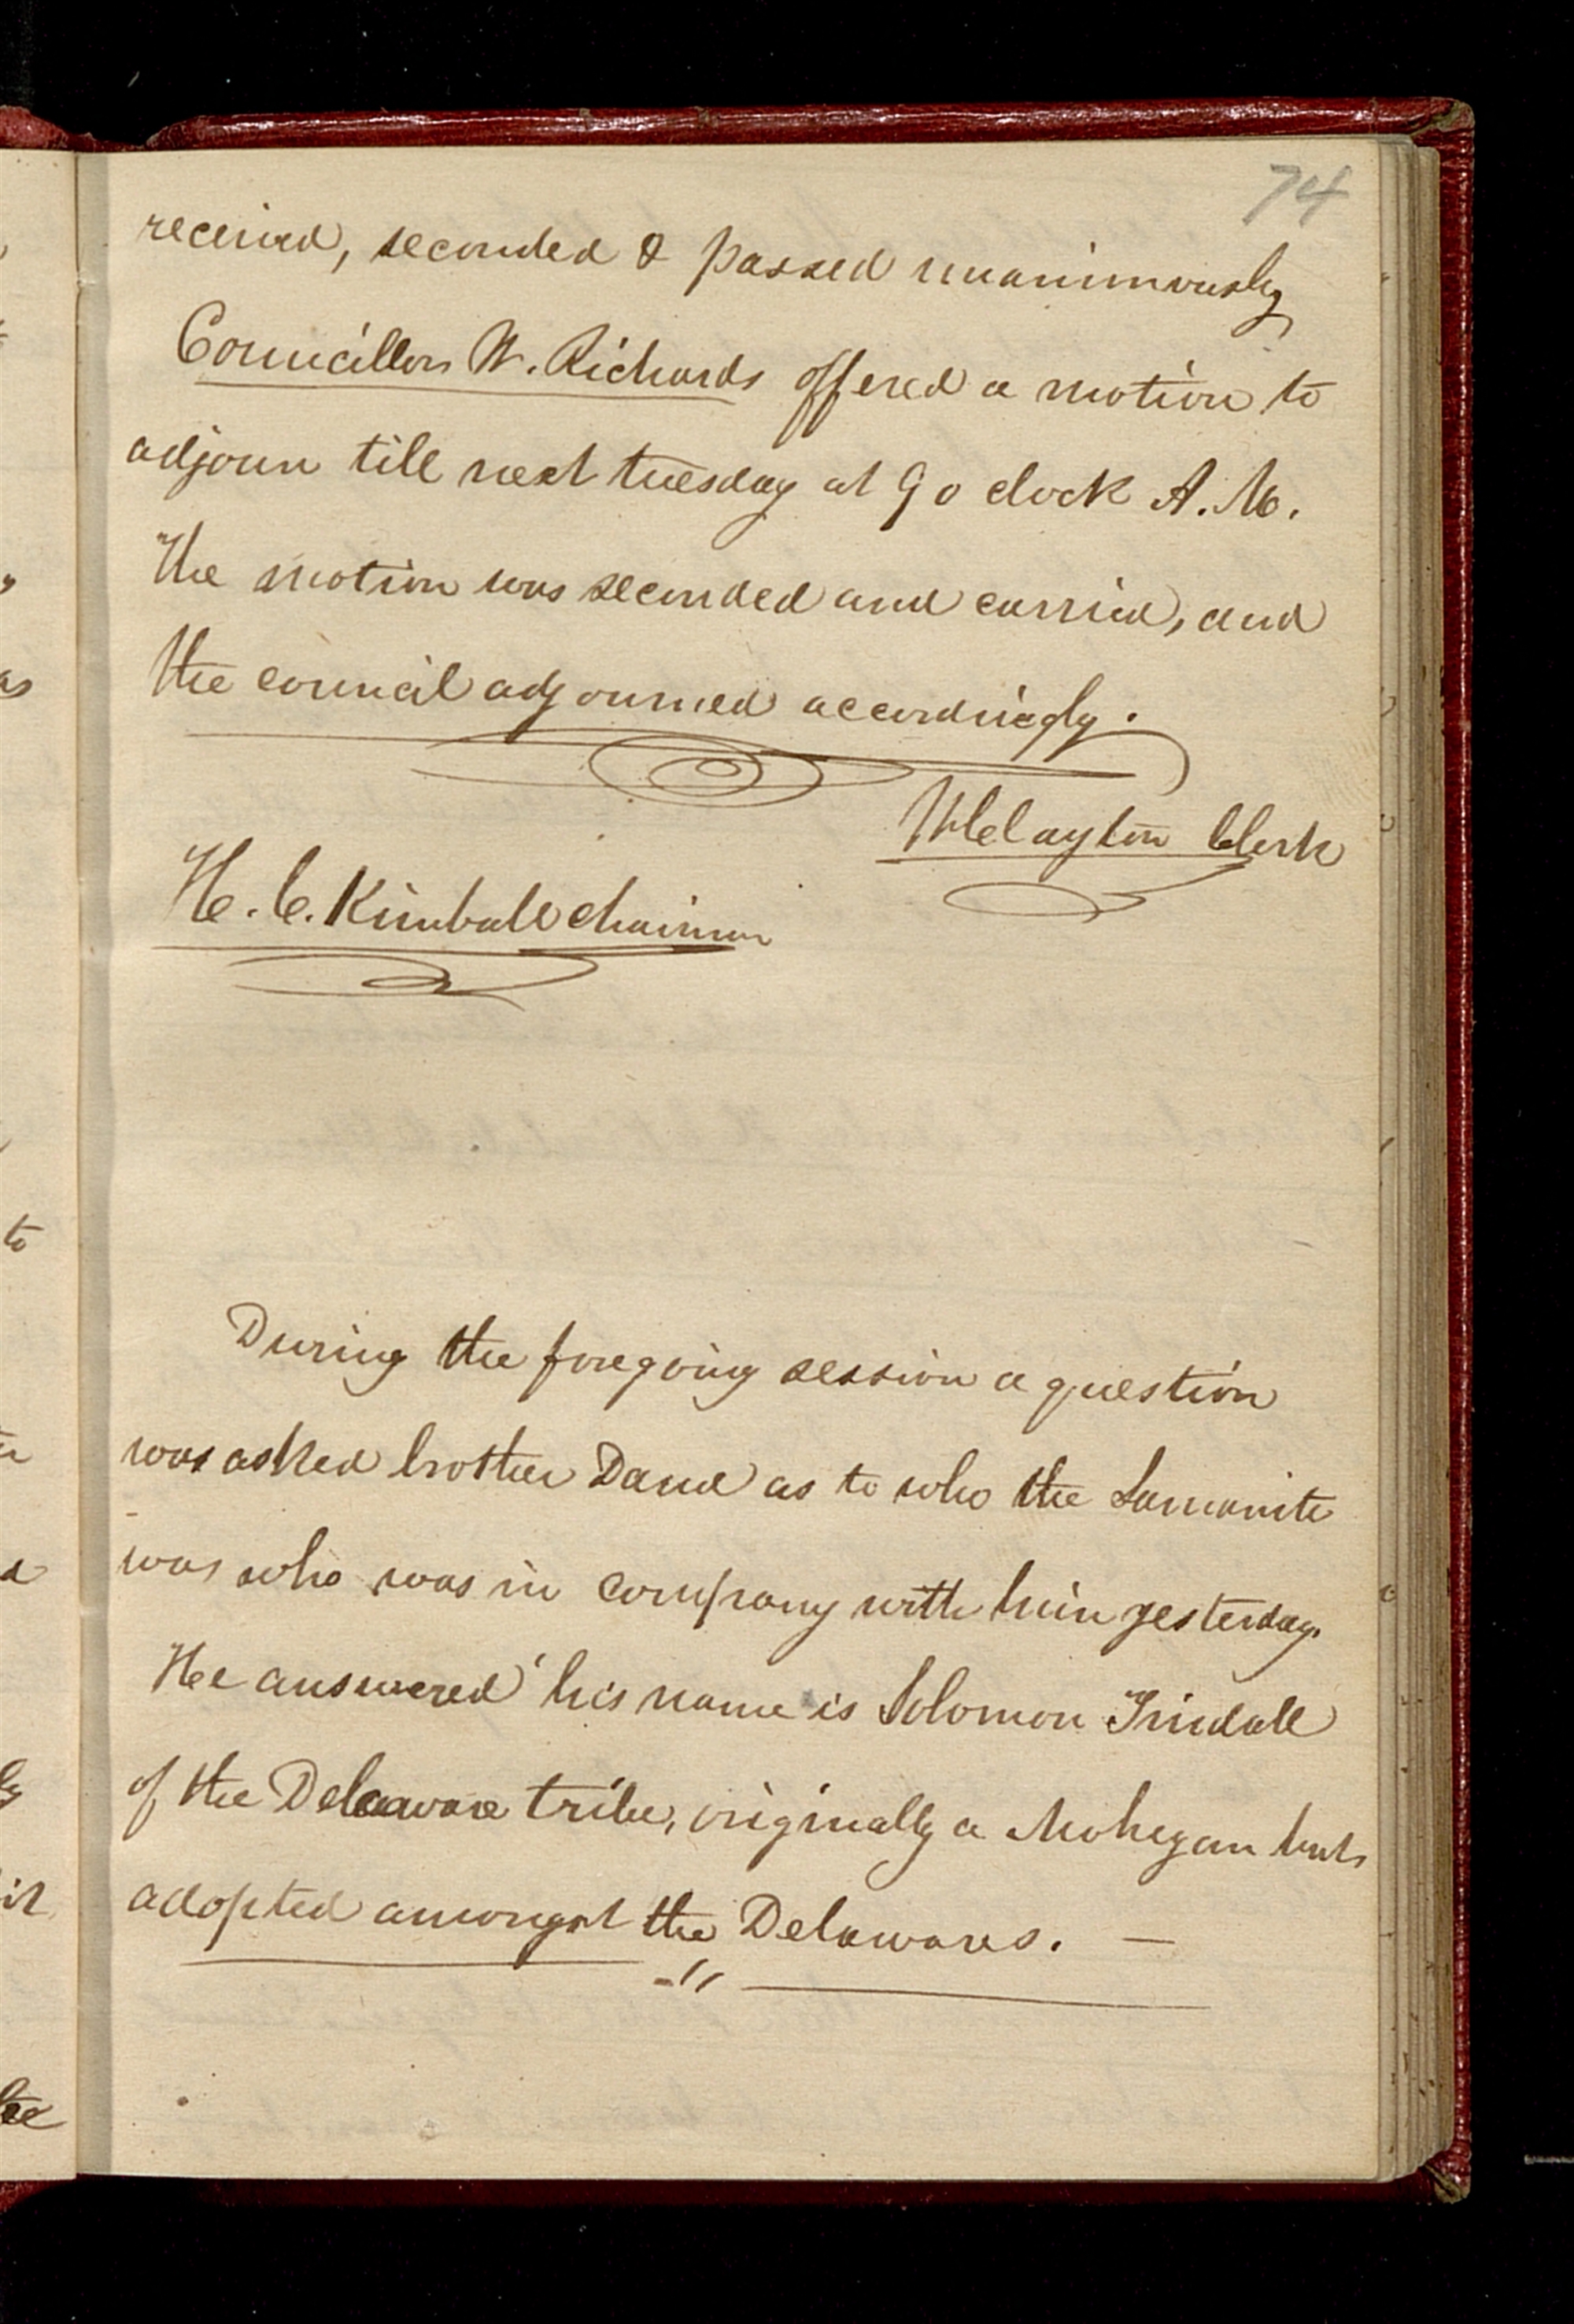 74
received, seconded & passed unanimously
Councillor W. Richards offered a motion to
adjourn till next tuesday at 9 o clock A. M.
The motion was seconded and carried, and
the council adjourned accordingly.
W Clayton Clerk
H. C. Kimball chairman
During the foregoing session a question
was asked brother Dana as to who the Lamanite
was who was in company with him yesterday.
He answered his name is Solomon Tindall
of the Delaware tribe, originally a Mohegan but
adopted amongst the Delawares. —